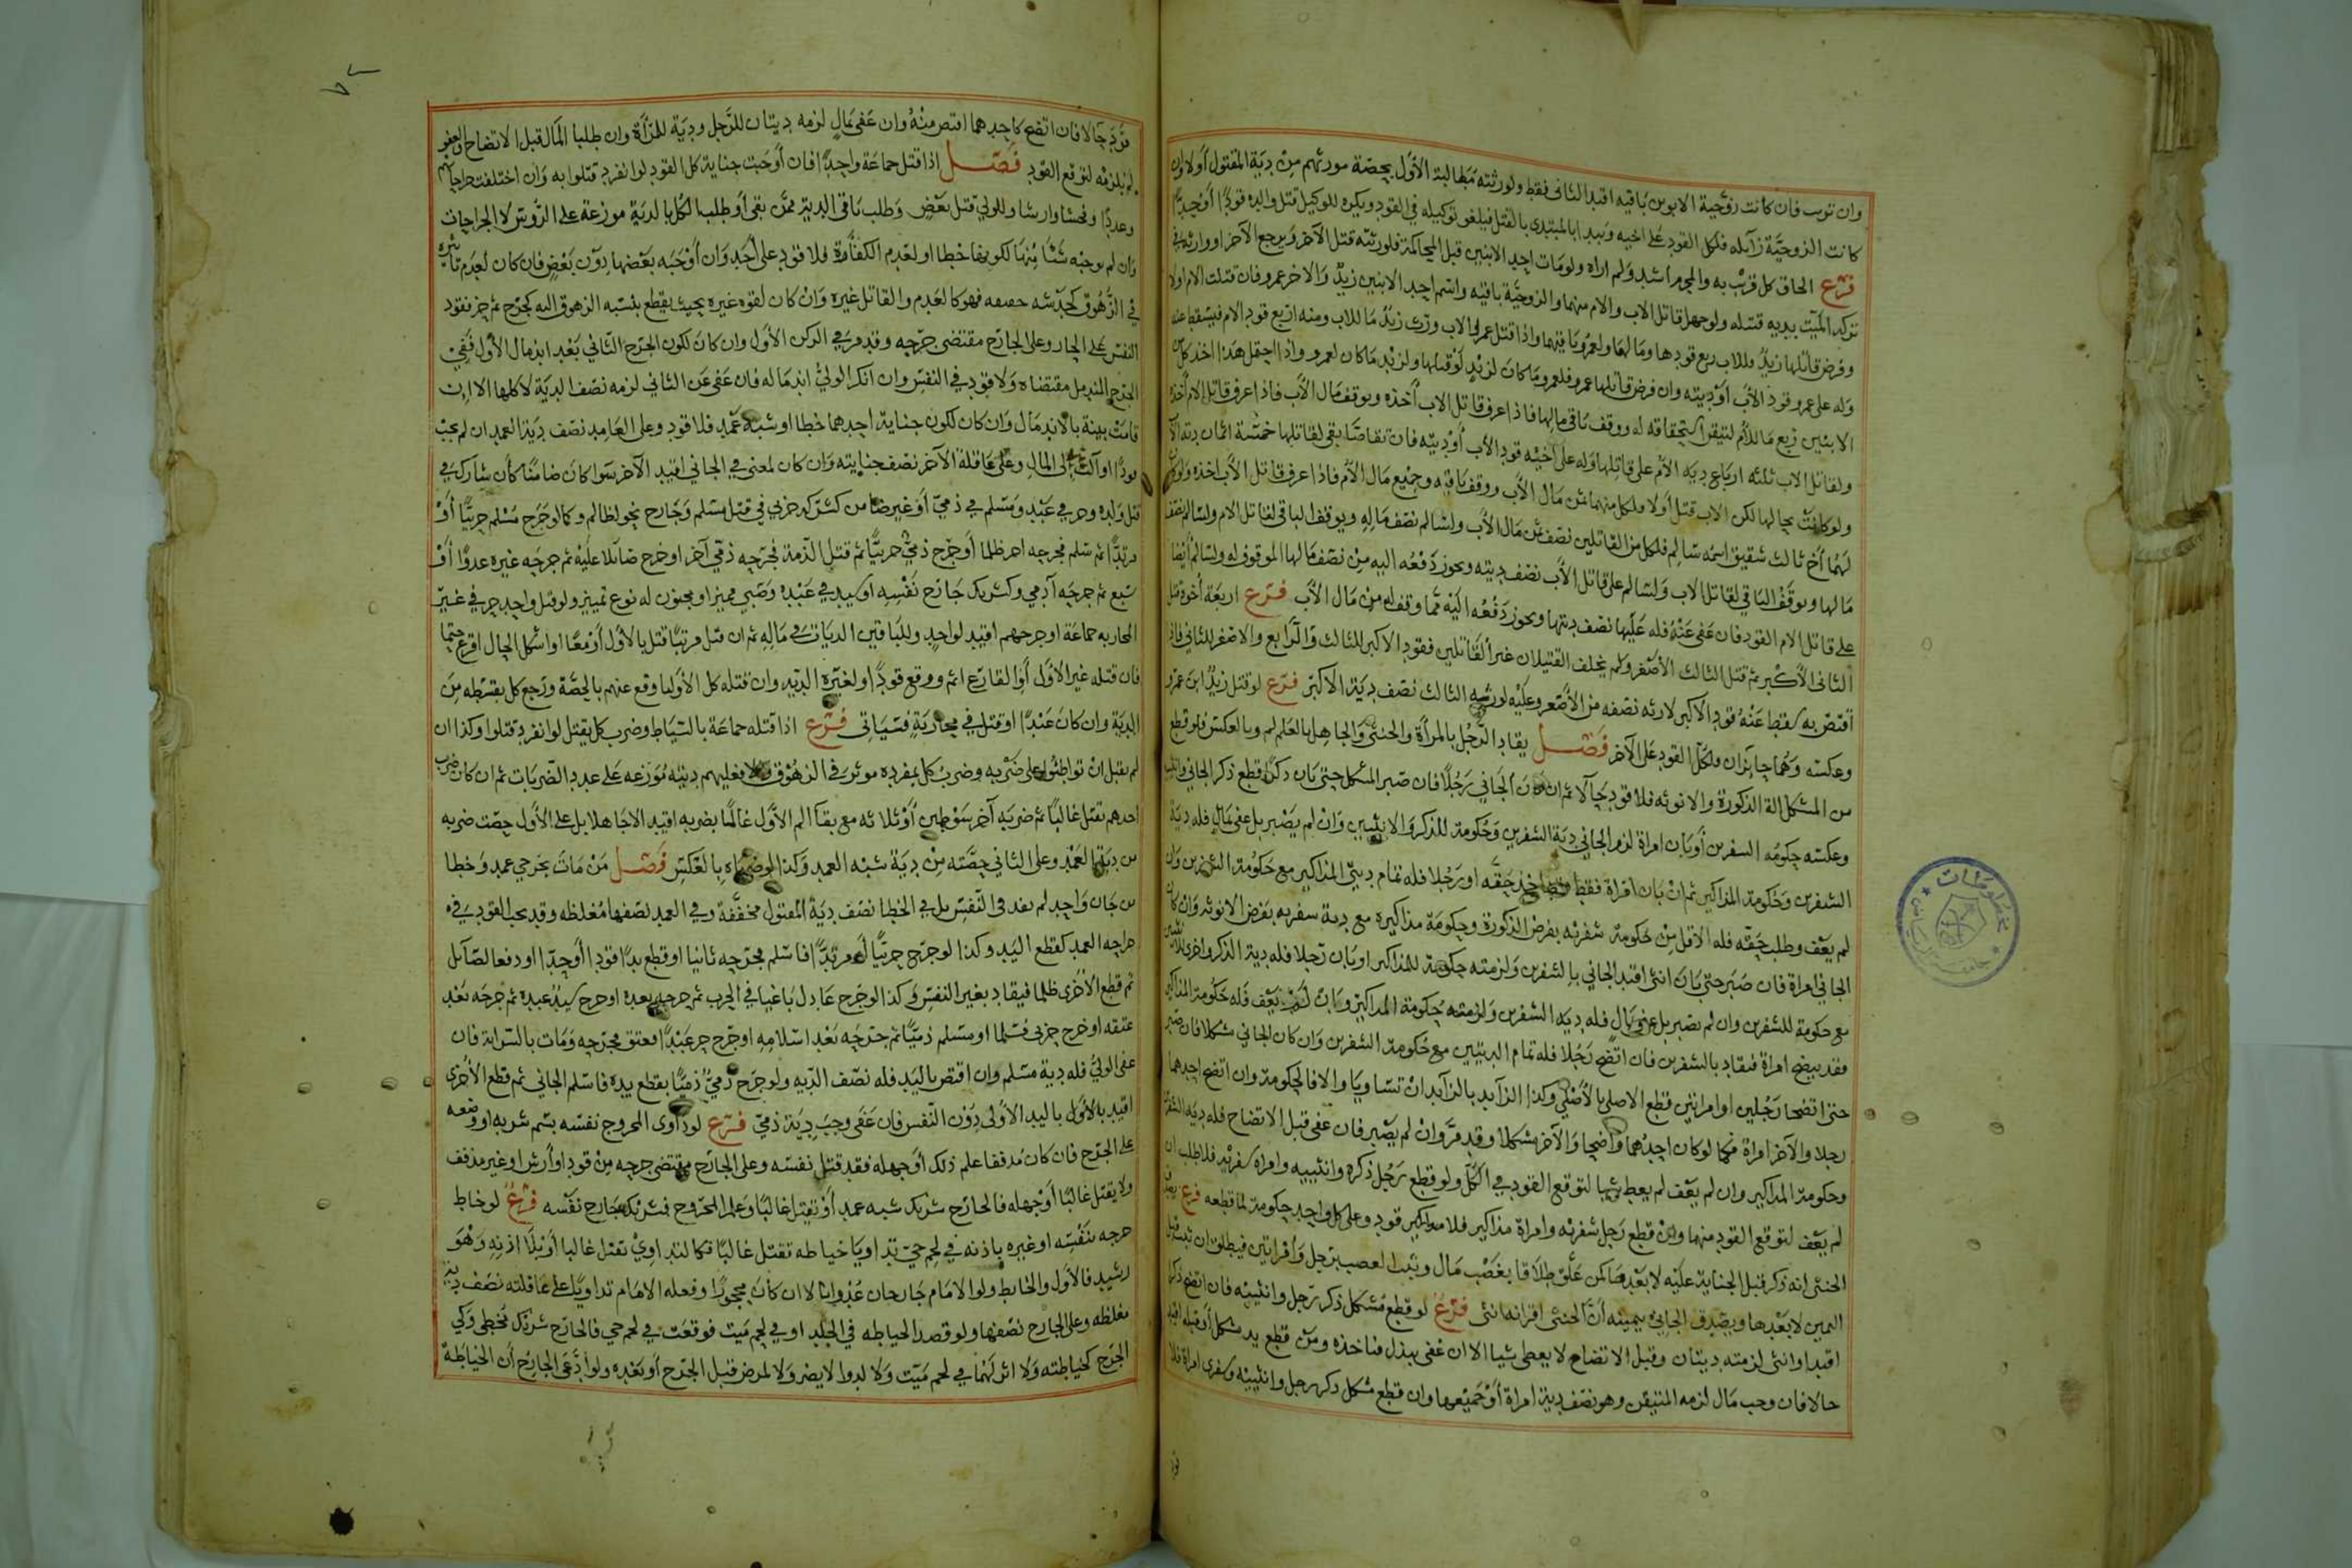 وان ترتب فان كانت زوجية الابوين باقيه اقيد الثاني فقط ولورثته مطالبة الاول بحصة مورثهم من دية المقتول اولا وان
كانت الزوجية زائله فلكل القود على اخيه ويبدا بالمبتدي بالقتل فيلغو توكيله في القود ويكره للوكيل قتل والده قودا او حدا
فرع الحاق كل قرب به والمحرم اشد ولم اراه ولو مات احد الابنين قبل المحاكمة فلورثته قتل الآخر ويرجع الآخر او وارثه في
تركة الميت بديه قتله ولو جهل قاتل الاب والام منهما والزوجية باقيه واسم احد الابنين زيد والاخر عمرو فان قتلت الام اولا
وفرض قاتلها زيد فللاب ربع قودها ومالها ولعمرو باقيهما واذا قتل عمرو الاب ورث زيد ما للاب ومنه اربع قود الام فيسقط عنه
وله على عمرو قود الاب او ديته وان فرض قاتلها عمرو فلعمرو ما كان لزيد لو قتلها ولزيد ما كان لعمرو واذا احتمل هذا اخذ كل من
الابنين ربع مال الام لتيقن استحقاقه له ووقف باقي مالها فاذا عرف قاتل الاب اخذه ويوقف مال الاب فاذا عرف قاتل الام اخذه
ولقاتل الاب ثلثه ارباع ديه الام على قاتلها وله على اخيه قود الاب او ديته فان تقاصا بقي لقاتلها خمسة اثمان دية الاب
ولو كانت بحالها لكن الاب قتل اولا فلكل منهما ثمن مال الاب ووقف باقيه وجميع مال الام فاذا عرف قاتل الاب اخذه ولو كان
لهما اخ ثالث شقيق اسمه سالم فلكل من القاتلين نصف ثمن مال الاب ولسالم نصف ماله ويوقف الباقي لقاتل الام ولسالم نصف
مالها ويوقف الباقي لقاتل الاب ولسالم على قاتل الاب نصف ديته ويجوز دفعه اليه من نصف مالها الموقوف له ولسالم ايضا
على قاتل الام القود فان عفى عنه فله عليها نصف ديتها ويجوز دفعه اليه مما وقف له من مال الاب فرع اربعة اخوة قتل
الثاني الاكبر ثم قتل الثالث الاصغر ولم يخلف القتيلان غير القاتلين فقود الاكبر للثالث والرابع والاصغر للثاني فان
اقتص به سقط عنه قود الاكبر لارثه نصفه من الاصغر وعليه لورثه الثالث نصف دية الاكبر فرع لو قتل زيد ابن عمرو
وعكسه وهما جائزان فلكل القود على الآخر فصل يقاد الرجل بالمراة والخنثى والجاهل بالعالم وبالعكس فلو قطع
من المشكل الة الذكورة والانوثه فلا قود حالا ثم ان كان الجاني رجلا فان صبر المشكل حتى بان ذكرا قطع ذكر الجاني وانثييه
وعكسه حكومه السفرين او بان امراة لزم الجاني دية الشفرين وحكومة للذكر والانثيين وان لم يصبر بل عفى بمال فله دية
الشفرين وحكومة المذاكير ثم ان بان امراة فقط اخذ حقه او رجلا فله تمام ديتي المذاكير مع حكومة الشفرين وان
لم يعف وطلب حقه فله الاقل من حكومة شفريه بفرض الذكورة وحكومة مذاكيره مع دية سفريه بفرض الانوثه وان كان
الجاني امراة فان صبر حتى بان انثى اقيد الجاني بالشفرين ولزمته حكومة للمذاكير او بان رجلا فله دية الذكر واخرى للانثيين
مع حكومة للشفرين وان لم يصبر بل عفى بمال فله ديه الشفرين ولزمته حكومة المذاكير وان لم يعف فله حكومة المذاكير
فقد يبضح امراة فيقاد بالشفرين فان اتضح رجلا فله تمام الديتين مع حكومة الشفرين وان كان الجاني مشكلا فان صبر
حتى اتضحا رجلين او امراتين قطع الاصلي بالاصلي وكذا الزايد بالزايد ان تساويا والا فالحكومة وان اتضح احدهما
رجلا والآخر امراة فكما لو كان احدهما واضحا والآخر مشكلا وقد مر وان لم يصبر فان عفى قبل الاتضاح فله ديه الشفرين
وحكومة المذاكير وان لم يعف لم يعط شيا لتوقع القود في الكل ولو قطع رجل ذكره وانثييه وامراه سفريه فلا طلب ان
لم يعف لتوقع القود منهما وان قطع رجل شفريه وامراة مذاكيره فلا قود وعلى كل واحد حكومة لما قطعه فرع
الخنثى انه ذكر قبل الجناية عليه لا بعدها كمن علق طلاقا بغصب مال وثبت الغصب برجل وامراتين فيطلق ان
اليمين لا بعدها ويصدق الجاني بيمينه ان الخنثى اقر انه انثى فرع لو قطع مشكل ذكر رجل وانثييه فان اتضح ذكرا
اقيد او انثى لزمته ديتان وقبل الاتضاح لا يعطى شيا الا ان عفى ببذل فناخذه ومن قطع يد مشكل
حالا فان وجب مال لزمه المتيقن وهو نصف دية امراة او جميعها وان قطع مشكل ذكر رجل وانثييه وسفري امراة فلا
قود حالا فان اتضح كاحدهما اقتص منه وان عفى بمال لزمه ديتان للرجل ودية للمراة وان طلبا المال قبل الاتضاح والعفو
لم يلزمه لتوقع القود فصل اذا قتل جماعة واحدا فان اوجبت جناية كل القود لو انفرد قتلوا به وان اختلفت جراحاتهم
وعددا وفحشا وارشا وللولي قتل بعض وطلب باقي الدية ممن بقى او طلب الكل بالدية موزعة على الرؤس لا الجراحات
وان لم يوجبه شئا منها لكونها خطا او لعدم الكفاءة فلا قود على احد وان اوجبه بعضها دون بعض فان كان لعدم تاثيره
في الزهوق كخدشه خفيفه فهو كالعدم والقاتل غيره وان كان لقوه غيره بحيث يقطع بنسبه الزهوق اليه كجرح ثم حز فقود
النفس على الحاز وعلى الجارح مقتضى جرحه وقد مر في الركن الاول وان كان لكون الجرح الثاني بعد اندمال الاول ففي
الجرح المندمل مقتضاه ولا قود في النفس وان انكر الولي اندماله فان عفى عن الثاني لزمه نصف الدية لا كلها الا ان
قامت بينة بالاندمال وان كان لكون جناية احدهما خطا او شبه عمد فلا قود وعلى العامد نصف دية العمد ان لم يجب
قودا او آلت الى المال وعلى عاقلة الآخر نصف جنايته وان كان لمعنى في الجاني اقيد الآخر سوا كان ضامنا كان شارك في
قتل ولده وحر في عبد ومسلم في ذمي او غير ضامن كشركه حربي في قتل مسلم وجارح بحق لظالم وكما لو جرح مسلم حربيا او
مرتدا ثم سلم فجرحه احر ظلما او جرح ذمي حربيا ثم قتل الذمة فجرحه ذمي آخر او جرح صائلا عليه ثم جرحه غيره عدوا او
سبع ثم جرحه آدمي وكشريك جارح نفسه او سيد في عبده وصبي مميز او مجنون له نوع تمييز ولو قتل واحد حر في غير
المحاربه جماعة او جرحهم اقيد لواحد وللباقين الديات في ماله ثم ان قتل مرتبا قتل بالاول او معا او اشكل الحال اقرع حتما
فان قتله غير الاول او القارع اثم ووقع قودا ولغيره الديه وان قتله كل الاوليا وقع عنهم بالحصة ورجع كل بقسطه من
الدية وان كان عبدا او قتل في محاربة فسياتي فرع اذا قتله جماعة بالسياط وضرب كل يقتل لو انفرد قتلوا وكذا ان
لم يقتل ان تواطئوا على ضربه وضرب كل بمفرده موثر في الزهوق والا فعليهم ديته موزعه على عدد الضربات ثم ان كان ضرب
احدهم تقتل غالبا ثم ضربه آخر سوطين او ثلاثه مع بقا الم الاول عالما بضربه اقيد الا جاهلا بل على الاول حصت ضربه
من دية العمد وعلى الثاني حصته من دية شبه العمد وكذا لو ضرباه بالعكس فصل من مات بجرحي عمد وخطا
من جان واحد لم يقد في النفس بل في الخطا نصف دية المقتول مخففة وفي العمد نصفها مغلظه وقد يجب القود في
جراحه العمد كقطع اليد وكذا لو جرح حربيا او مرتدا فاسلم فجرحه ثانيا او قطع يدا قودا او حدا او دفعا لصائل
ثم قطع الاخرى ظلما فيقاد بغير النفس وكذا لو جرح عادل باغيا في الحرب ثم جرحه بعده او جرح سيد عبده ثم جرحه بعد
عتقه او جرح حربي مسلما او مسلم ذميا ثم جرحه بعد اسلامه او جرح حر عبدا فعتق فجرحه ومات بالسراية فان
عفى الولي فله دية مسلم وان اقتص باليد فله نصف الديه ولو جرح ذمي ذميا بقطع يده فاسلم الجاني ثم قطع الاخرى
اقيد بالاول باليد الاولى دون النفس فان عفى وجب دية ذمي فرع لو داوى المجروح نفسه بسم شربه او وضعه
على الجرح فان كان مذففا علم ذلك او جهله فقد قتل نفسه وعلى الجارح مقتضى جرحه من قود او ارش او غير مذفف
ولا يقتل غالبا او جهله فالجارح شريك شبه عمد او يقتل غالبا وعلم المجروح فشريك جارح نفسه فرع لو خاط
جرحه بنفسه او غيره باذنه في لحم حي تداويا خياطه تقتل غالبا فكالتداوي بقتل غالبا او بلا اذنه وهو
رشيد فالاول والخايط ولو الامام جارحان عدوانا لا ان كان محجورا وفعله الامام تداويا بل على عاقلته نصف دية
مغلظه وعلى الجارح نصفها ولو قصد الخياطه في الجلد او في لحم ميت فوقعت في لحم حي فالجارح شريك مخطي وكي
الجرح كخياطته ولا اثر لهما في لحم ميت ولا لدوا لا يضر ولا لمرض قبل الجرح او بعده ولو ادعى الجارح ان الخياطة